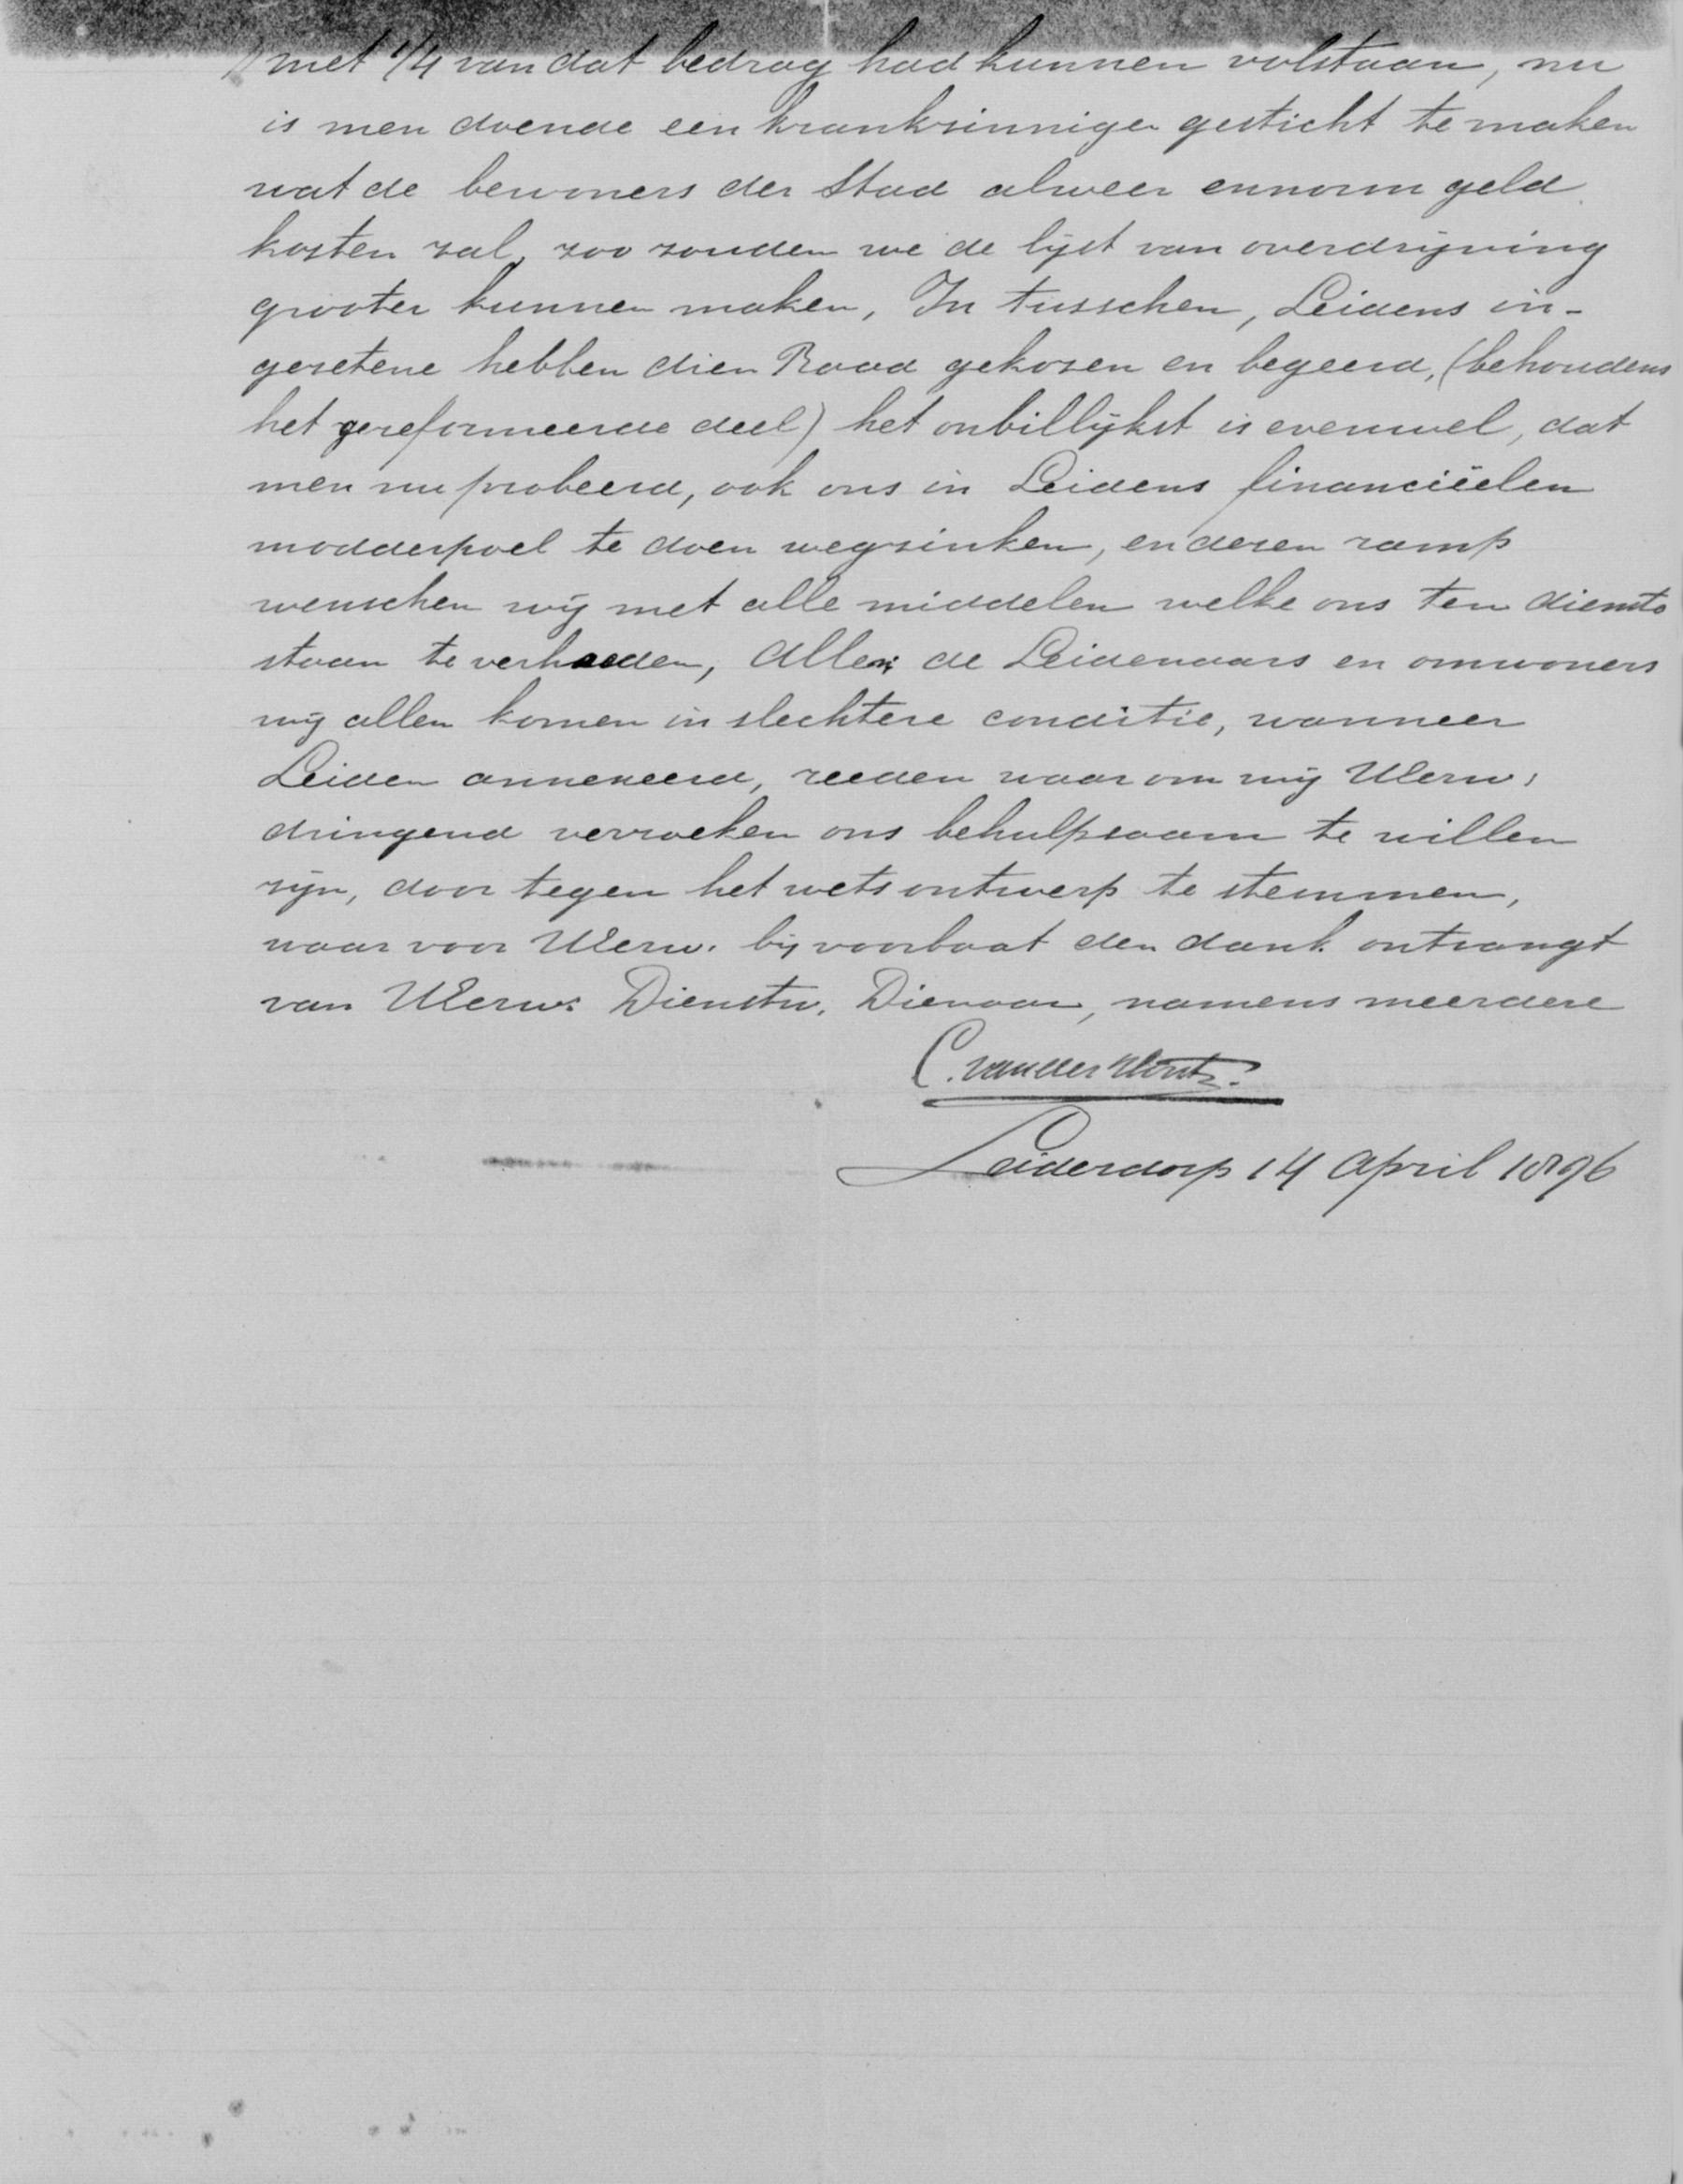 met 1/4 van dat bedrag had kunnen volstaan, nu
is men doende een krankzinnigen gesticht te maken
wat de bewoners der Stad alweer ennorm geld
kosten zal, zoo zouden we de lijst van overdrijving
grooter kunnen maken, In tusschen, Leidens in-
gezetene hebben dien Raad gekozen en begeerd, (behoudens
het gereformeerde deel) het onbillijkst is evenwel, dat
men nu probeerd, ook ons in Leidens financiëelen
modderpoel te doen wegzinken, en dezen ramp
wenschen wij met alle middelen welke ons ten dienste
staan te verhoeden, Allen de Leidenaars en omwoners
wij allen komen in slechtere conditie, wanneer
Leiden annexeerd, reeden waarom wij UEerw:
dringend verzoeken ons behulpzaam te willen
zijn, door tegen het wets ontwerp te stemmen,
waar voor UEerw. bij voorbaat den dank ontvangt
van UEerw: Dienstw. Dienaar, namens meerdere
C. van der
Leiderdorp 14 April 1896